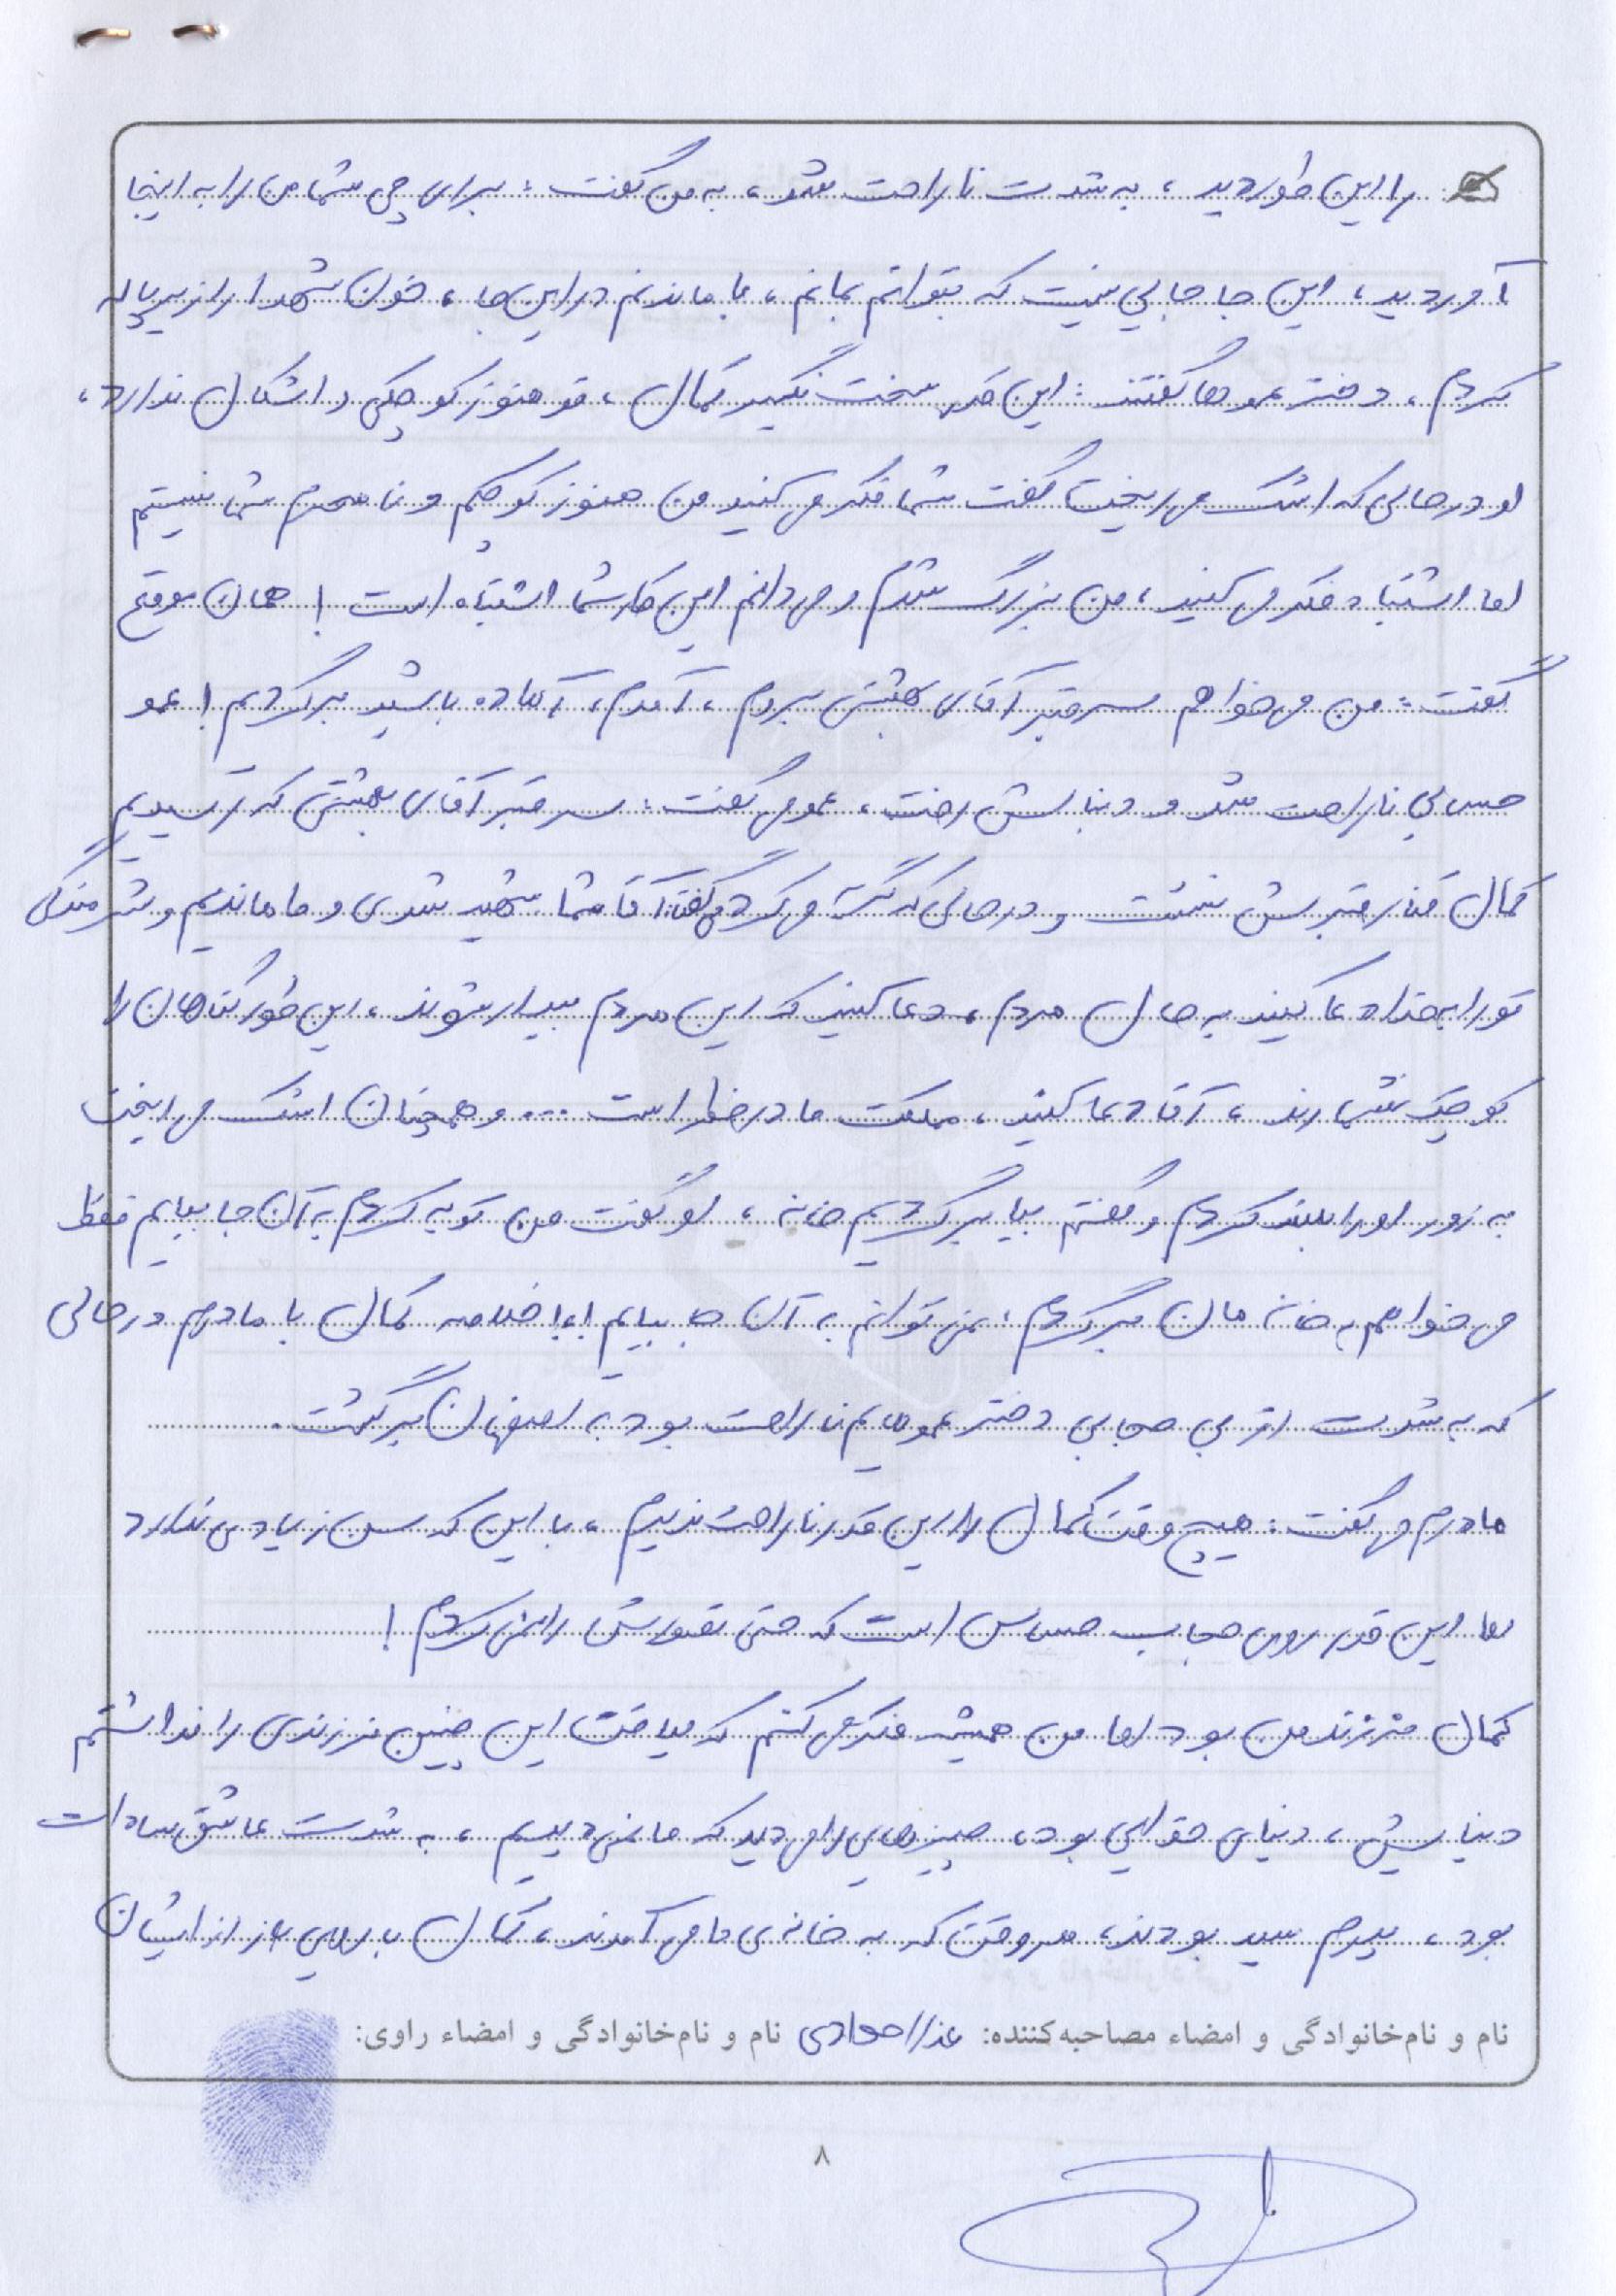 را این طور دید، به شدت ناراحت شد، به من گفت: برای چی شما من را به اینجا
آوردید، این جا جایی نیست که بتوانم بمانم، با ماندنم در این جا، خون شهدا را زیر پا له
کردم، دختر عموها گفتند: این قدر سخت نگیر کمال، تو هنوز کوچکی و اشکال ندارد،
او در حالی که اشک می ریخت گفت شما فکر می کنید من هنوز کوچکم و نا محرم شما نیستم
اما اشتباه فکر می کنید، من بزرگ شدم و می دانم این کار شما اشتباه است! همان موقع
گفت: من می خواهم سر قبر آقای بهشتی بروم، آمدم، آماده باشید برگردیم! عمو
حسابی ناراحت شد و دنبالش رفت، عمو می گفت: سر قبر آقای بهشتی که رسیدیم
کمال کنار قبرش نشست و در حالی که گریه می کرد می گفت: آقا شما شهید شدی و ما ماندیم و شرمندگی
تو را به خدا دعا کنید به حال مردم، دعا کنید که این مردم بیدار شوند، این طور گناهان را
کوچک نشمارند، آقا دعا کنید، مملکت ما در خطر است ... و همچنان اشک می ریخت
به زور او را بلند کردم و گفتم بیا برگردیم خانه، او گفت من توبه کردم به آن جا بیایم فقط
می خواهم به خانه مان برگردم، نمی توانم به آن جا بیایم!،! خلاصه کمال با مادرم در حالی
که به شدت از بی حجابی دختر عموهایم ناراحت بود به اصفهان برگشت.
مادرم می گفت: هیچ وقت کمال را این قدر ناراحت ندیدم، با این که سن زیادی ندارد
اما این قدر روی حجاب حساس است که حتی تصورش را نمی کردم!
کمال فرزند من بود اما من همیشه فکر می کنم که لیاقت این چنین فرزندی را نداشتم
دنیایش، دنیای خدایی بود، چیزهایی را می دید که ما نمی دیدیم، به شدت عاشق سادات
بود، پدرم سید بودند، هر وقت که به خانه ی ما می آمدند، کمال با رویی باز از ایشان
نام و نام‌خانوادگی و امضاء مصاحبه‌کننده: عذرا جوادی نام و نام‌خانوادگی و امضاء راوی:
۸